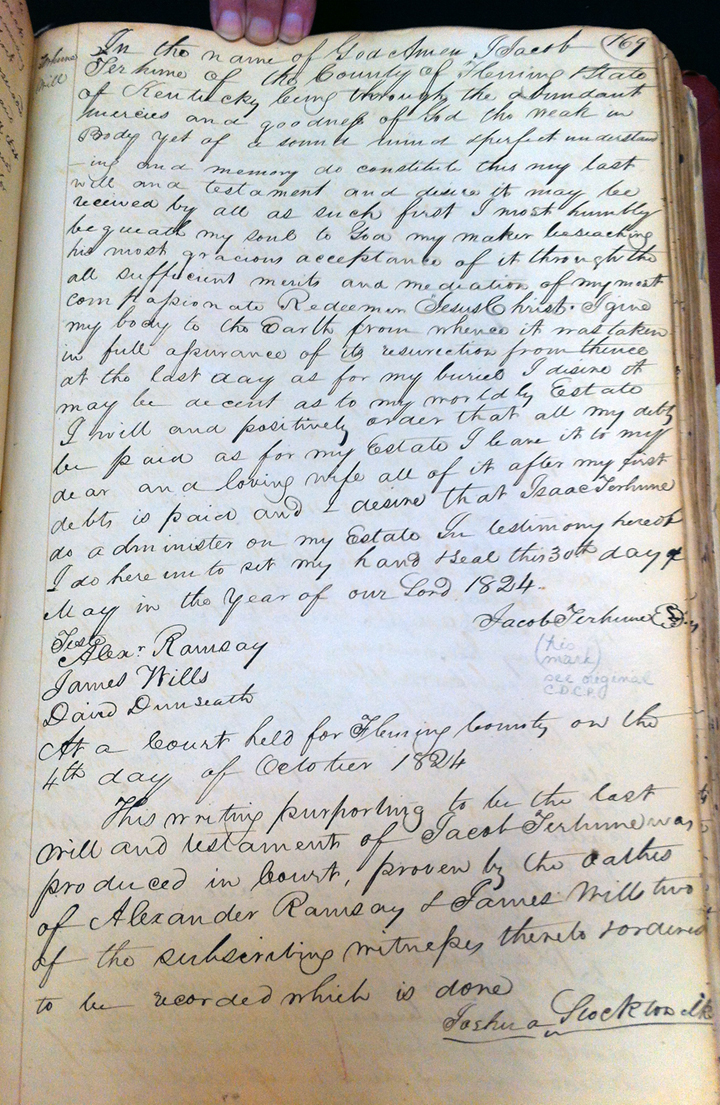 Terhune
Will
169
In the name of God Amen I Jacob
Terhune of the County of Fleming & State
of Kentucky being through the abundant
mercies and goodness of God tho weak in
Body yet of a sound mind & perfect understan
-ing and memory do constitute this my last
will and testament and desire it may be
received by all as such first I most humbly
bequeath my soul to God my maker beseaching
his most gracious acceptance of it through the
all sufficient merits and mediation of my most
compassionate Redeemer Jesus Christ. I give
my body to the Earth from whence it was taken
in full assurance of its resurrection from thence
at the last day as for my buriel I desire it
may be decent as to my worldly Estate
I will and positively order that all my debts
be paid as for my Estate I leave it to my
dear and loving wife all of it after my first
debts is paid and I desire that Isaac Terhune
do administer on my Estate In testimony hereof
I do here unto sit my hand & seal this 30th day of
May in the Year of our Lord 1824.
Jacob Terhune
(his
mark)
see original
C.D.C.P.
Teste
Alexr Ramsay
James Wills
David Dunseath
At a Court held for Fleming County on the
4th day of October 1824
This writing purporting to be the last
will and testament of Jacob Terhune was
produced in Court, proven by the oathes
of Alexander Ramsay & James Wills two
of the subscribing witnesses thereto & ordered
to be recorded which is done
Joshua Stockton clk